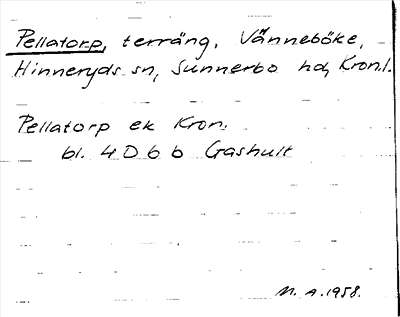 Pellatorp, terräng, Vänneböke,
Hinneryds sn, Sunnerbo hd, Kron.l.
Pellatorp ek Kron.
bl. 4D6b Gashult
M. A. 1958.